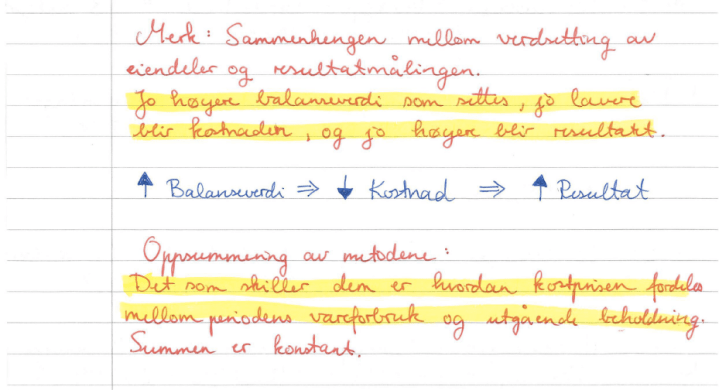 Merk: Sammenhengen mellom verdsetting av
eiendeler og resultatmålingen.
Jo høyere balanseverdi som settes, jo lavere
blir kostnaden, og jo høyere blir resultatet.
↑ Balanseverdi ⇒ ↓ Kostnad ⇒ ↑ Resultat
Oppsummering av metodene:
Det som skiller dem er hvordan kostprisen fordeles
mellom periodens vareforbruk og utgående beholdning.
Summen er konstant.